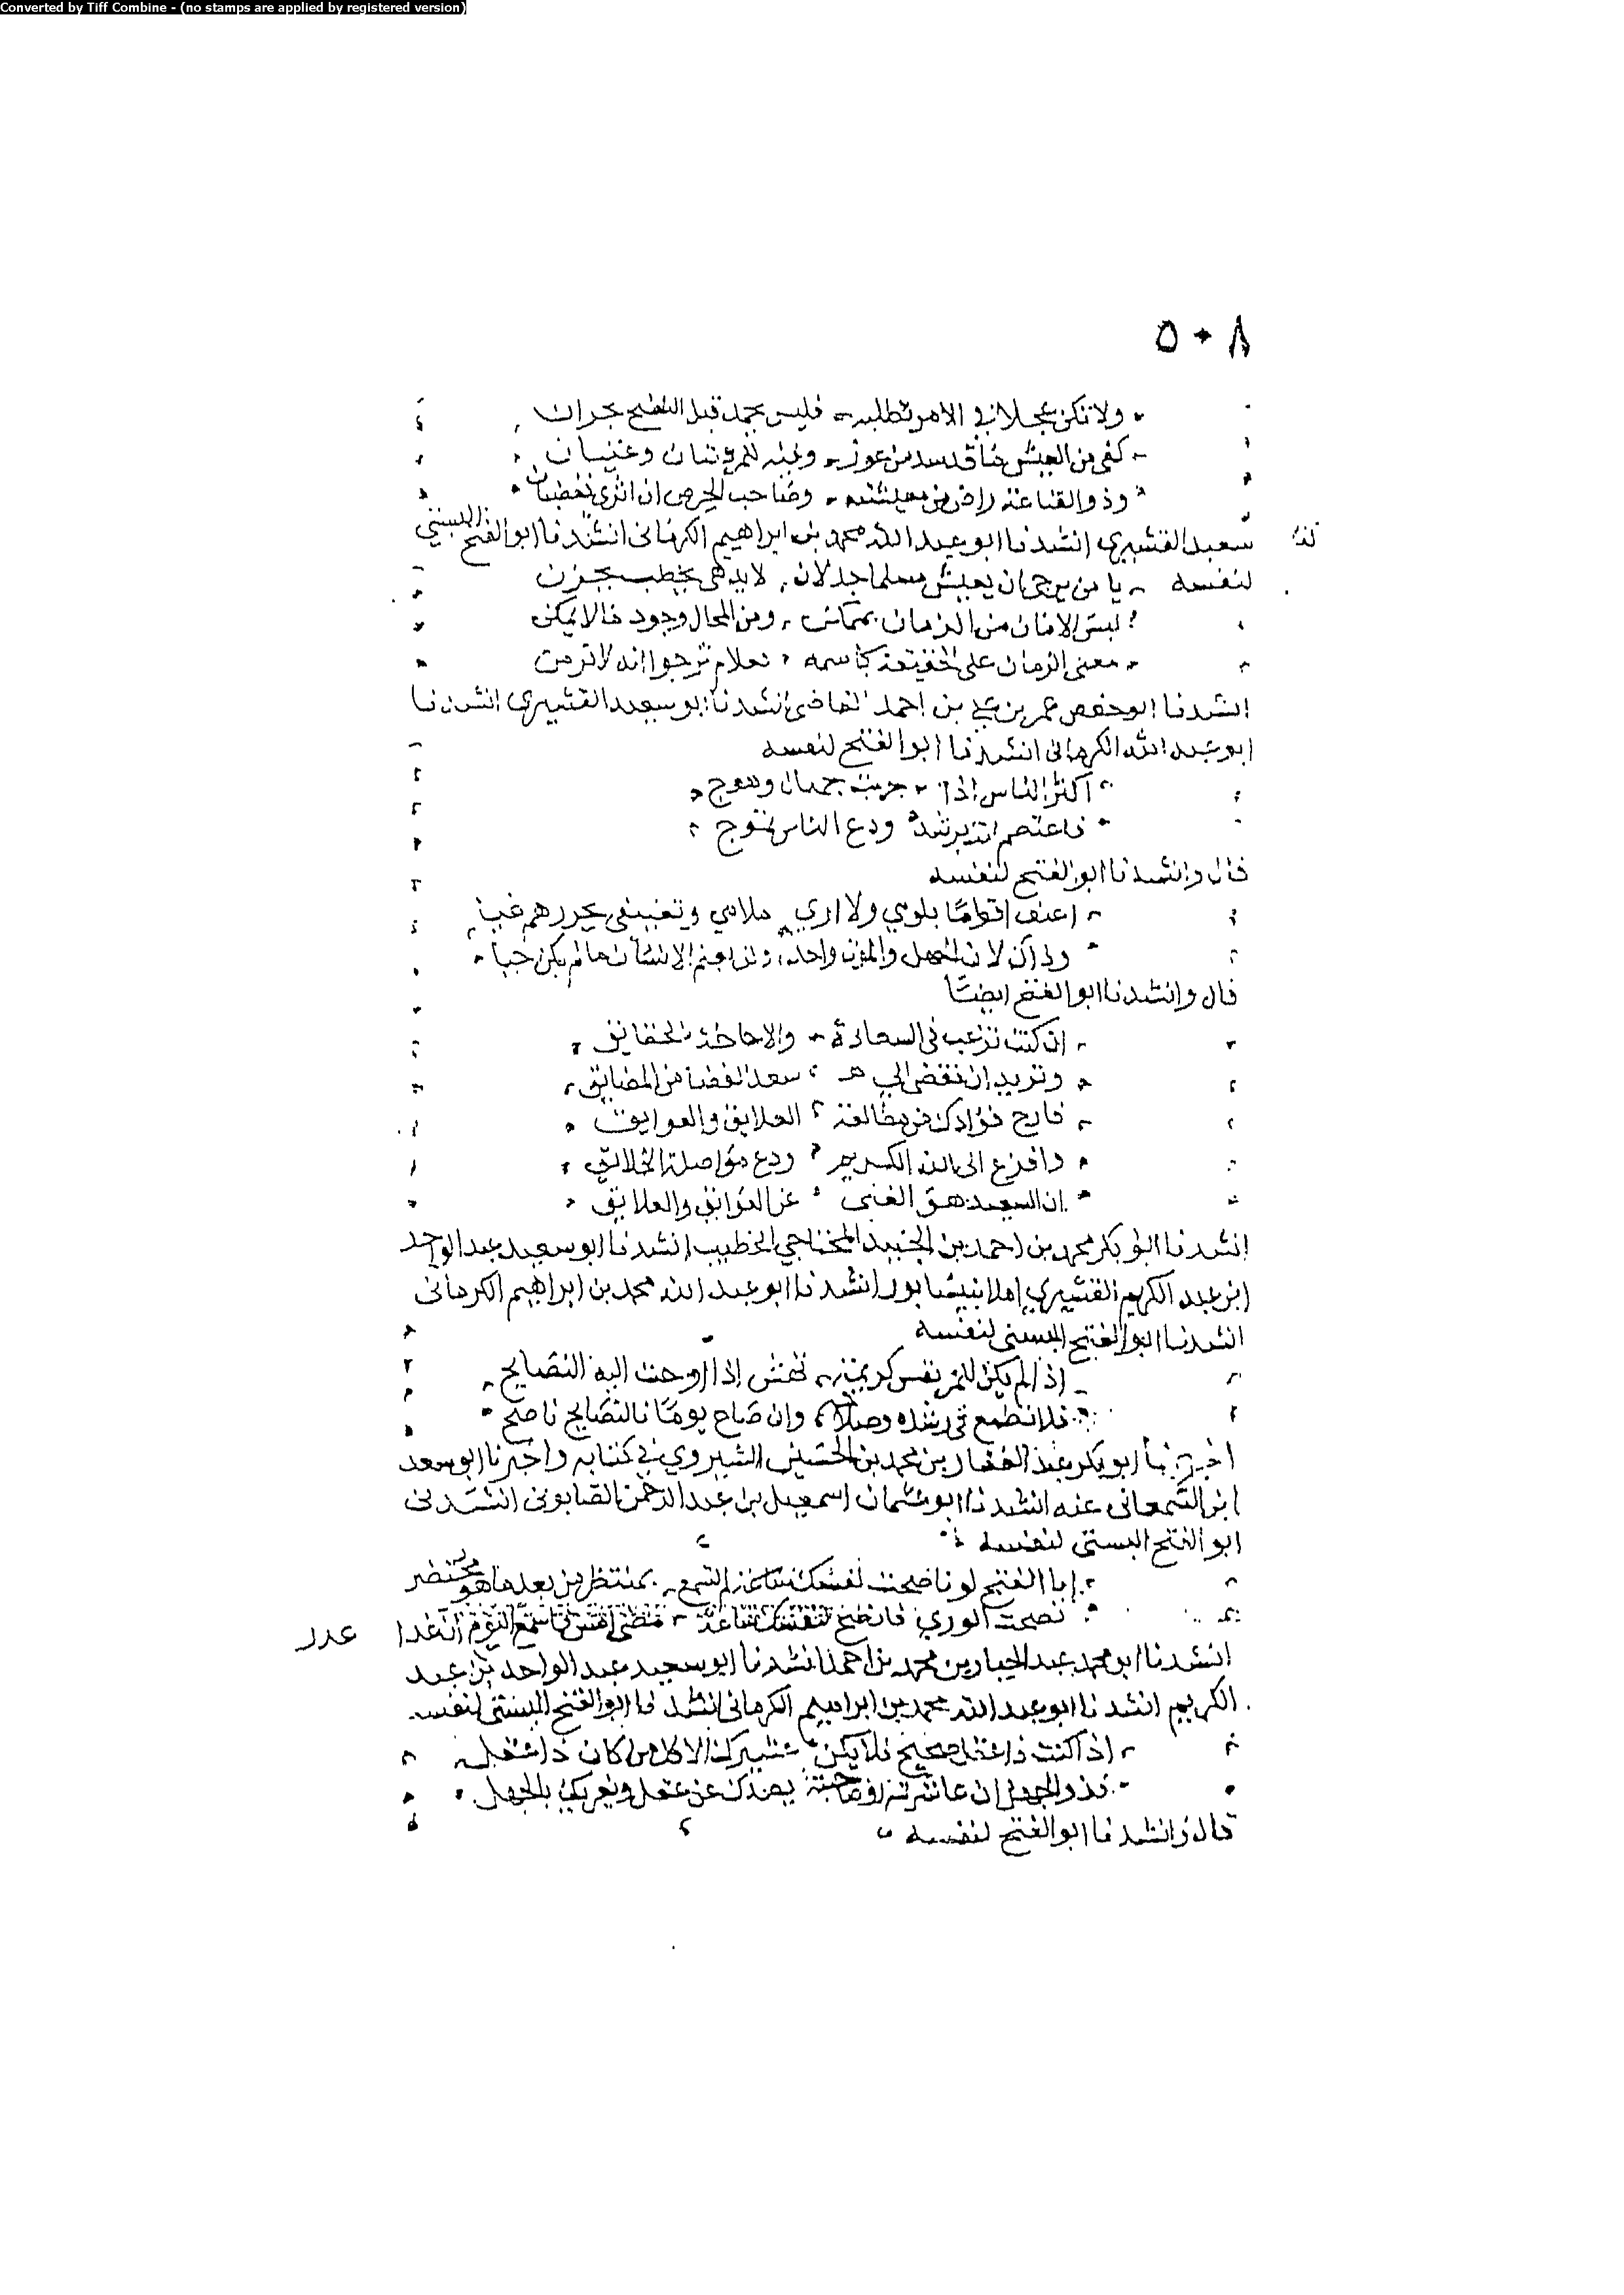 Converted by Tiff Combine - (no stamps are applied by registered version)
٥٠٨
ولا تكن عجلا في الامر تطلبه فليس يحمد قبل النضج بحران
كفى من العيش ما قد سد من عوز وفيه للمرء قنيان وغنيان
وذو القناعة راض من معيشته وصاحب الحرص ان اثرى فغضبان
سعيد القشيري انشدنا ابو عبد الله محمد بن ابراهيم الكرماني انشدنا ابو الفتح البستي
لنفسه يا من يرجى ان يعيش مسلما جذلان لا يدهى بخطب يحزن
ليس الامان من الزمان بممكن ومن المحال وجود ما لا يمكن
معنى الزمان على الحقيقة كاسمه فعلام ترجوا انه لا تزمن
انشدنا ابو حفص عمر بن علي بن احمد الفاضي انشدنا ابو سعيد القشيري انشدنا
ابو عبد الله الكرماني انشدنا ابو الفتح لنفسه
اكثر الناس اذا جربت جمال وهوج
فاعتصم بتدبر ودع الناس تموج
قال وانشدنا ابو الفتح لنفسه
اعنف اقواما بلومي ولا ارى ملامي وتعنيفي يحررهم غبا
وذاك لان الجهل والموت واحد ولن يعلم الانسان مالم يكن حيا
قال وانشدنا ابو الفتح ايضا
ان كنت ترغب في السعادة والاحاطة بالحقايق
وتريد ان تفضي الي سعد الفضا من المضايق
فارح فؤادك من مطالعة العلايق والعوايق
وافزع الى الله الكريم ودع مواصلة الخلائق
ان السعيد هو الغنى عن العوايق والعلايق
انشدنا ابو بكر محمد بن احمد بن الجنيد الخطيب انشدنا ابو سعيد عبد الواحد
ابن عبد الكريم القشيري املا بنيسابور انشدنا ابو عبد الله محمد بن ابراهيم الكرماني
انشدنا ابو الفتح البستي لنفسه
اذا لم يكن للمر نفس كريمة تهش إذا اوحت اليه النصايح
فلا تطمع في رشده وصلاحه وان صاح يوما بالنصايح ناصح
اخبرنا ابو بكر عبد الغفار بن محمد بن الحسين الشيروي في كتابه واخبرنا ابو سعد
ابن السمعاني عنه انشدنا ابو عثمان اسمعيل بن عبد الرحمن الصابوني انشدني
ابو الفتح البستي لنفسه
ابا الفتح لو ناصحت نفسك ساعة لم بمنتظر من بعد ما هو محتضر
نصحت الورى فانصح لنفسك ساعة
انشدنا ابو محمد عبد الجبار بن محمد بن احمد انشدنا ابو سعيد عبد الواحد بن عبد
الكريم انشدنا ابو عبد الله محمد بن ابراهيم الكرماني انشدنا ابو الفتح البستي لنفسه
اذا كنت ذا عقل صحيح فلا يكن عشيرك الا كل من كان ذا عقل
فذو الجهل ان عاشرته او صحبته يصدك عن عقل ويغريك بالجهل
قال وانشدنا ابو الفتح لنفسه